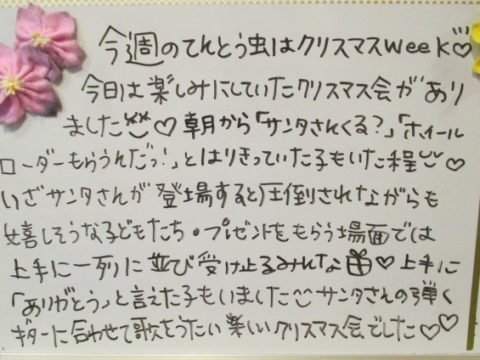 今週のてんとう虫はクリスマスweek♡
今日は楽しみにしていたクリスマス会があり
ました♡朝から「サンタさんくる?」「ホイール
ローダーもらうんだっ!」とはりきっていた子もいた程♡
いざサンタさんが登場すると圧倒されながらも
嬉しそうな子どもたち。プレゼントをもらう場面では
上手に一列に並び受け止るみんな♡上手に
「ありがとう」と言えた子もいましたサンタさんの弾く
ギターに合わせて歌をうたい楽しいクリスマス会でした♡♡